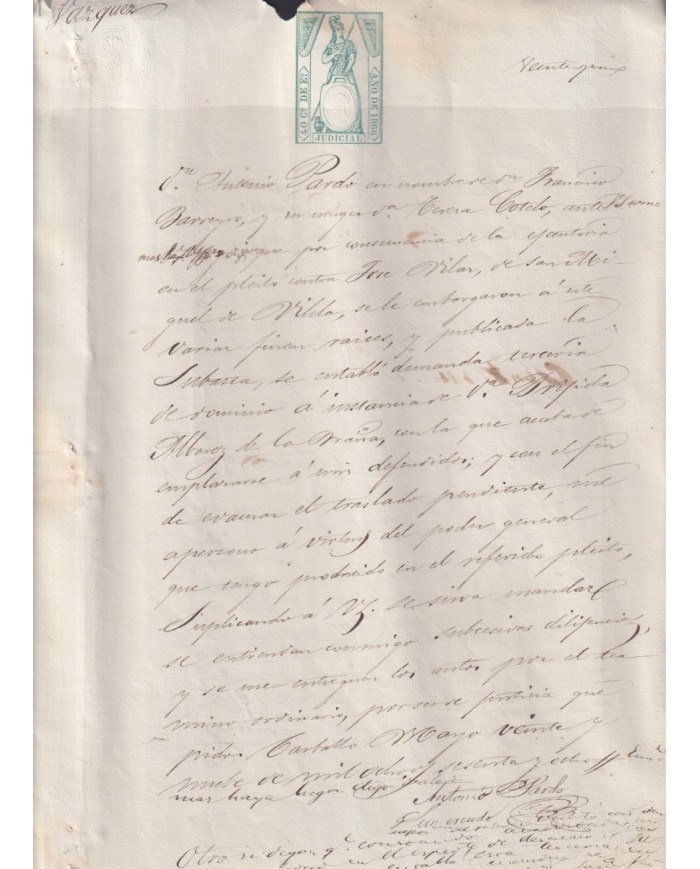 Vazquez
40 Cs. DE Eº.
AÑO DE 1868
JUDICIAL
Dn. Antonio Pardo en nombre de dn. Francisco
Barreyro, y su muger da. Teresa Cotelo, ante V.
digo que por consecuencia de la ejecutoria
en el pleito contra Jose Vilar, de San Mi-
guel de Vilela, se le embargaron á este
varias fincas raices, y publicada la
Subasta, se entabló demanda tercería
de dominio á instancia de Da. Brijida
Alborez de la Braña, con la que acaba de
emplazarse á mis defendidos; y con el fin
de evacuar el traslado pendiente, me
apersono á virtud del poder general
que tengo producido en el referido pleito,
Suplicando á V. se sirva mandar
se entiendan conmigo subcesivas dilijencias,
y se me entreguen los autos por el ter
mino ordinario, por ser de justicia que
pido. Carballo Mayo veinte y
nueve de mil ochocs. sesenta y ocho
mas haya lugar digo
Antonio Pardo
Otro si digo: qe.